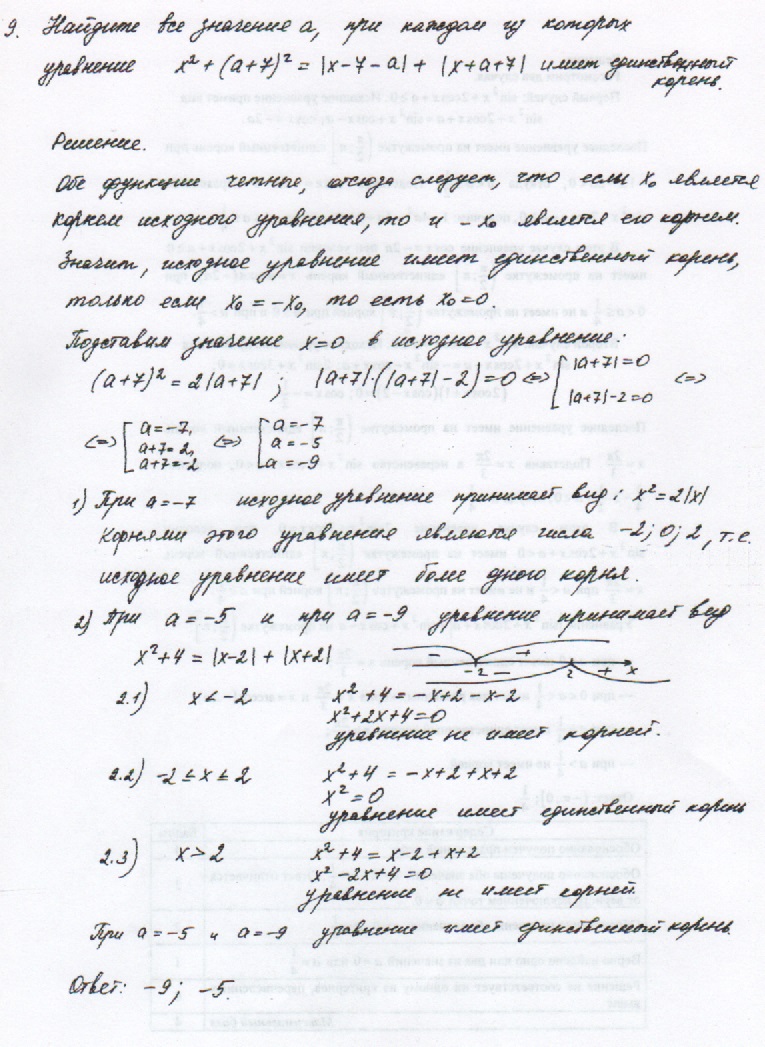 9. Найдите все значение a, при каждом из которых
уравнение x² + (a+7)² = |x-7-a| + |x+a+7| имеет единственный
корень.
Решение.
Обе функции четные, отсюда следует, что если x₀ является
корнем исходного уравнения, то и -x₀ является его корнем.
Значит, исходное уравнение имеет единственный корень,
только если x₀ = -x₀, то есть x₀=0.
Подставим значение x=0 в исходное уравнение:
(a+7)² = 2|a+7| ; |a+7|·(|a+7|-2)=0 <=> [ |a+7|=0
|a+7|-2=0 <=>
<=> [ a=-7, a+7=2, a+7=-2 <=> [ a=-7 a=-5 a=-9
1) При a=-7 исходное уравнение принимает вид: x²=2|x|
Корнями этого уравнения являются числа -2; 0; 2, т.е.
исходное уравнение имеет более одного корня.
2) При a=-5 и при a=-9 уравнение принимает вид
x²+4 = |x-2| + |x+2|
- + -2 - 2 + x
2.1) x < -2 x²+4 = -x+2 -x-2
x²+2x+4=0
уравнение не имеет корней.
2.2) -2 ≤ x ≤ 2 x²+4 = -x+2+x+2
x²=0
уравнение имеет единственный корень
2.3) x > 2 x²+4 = x-2+x+2
x²-2x+4=0
уравнение не имеет корней.
При a=-5 и a=-9 уравнение имеет единственный корень.
Ответ: -9; -5.